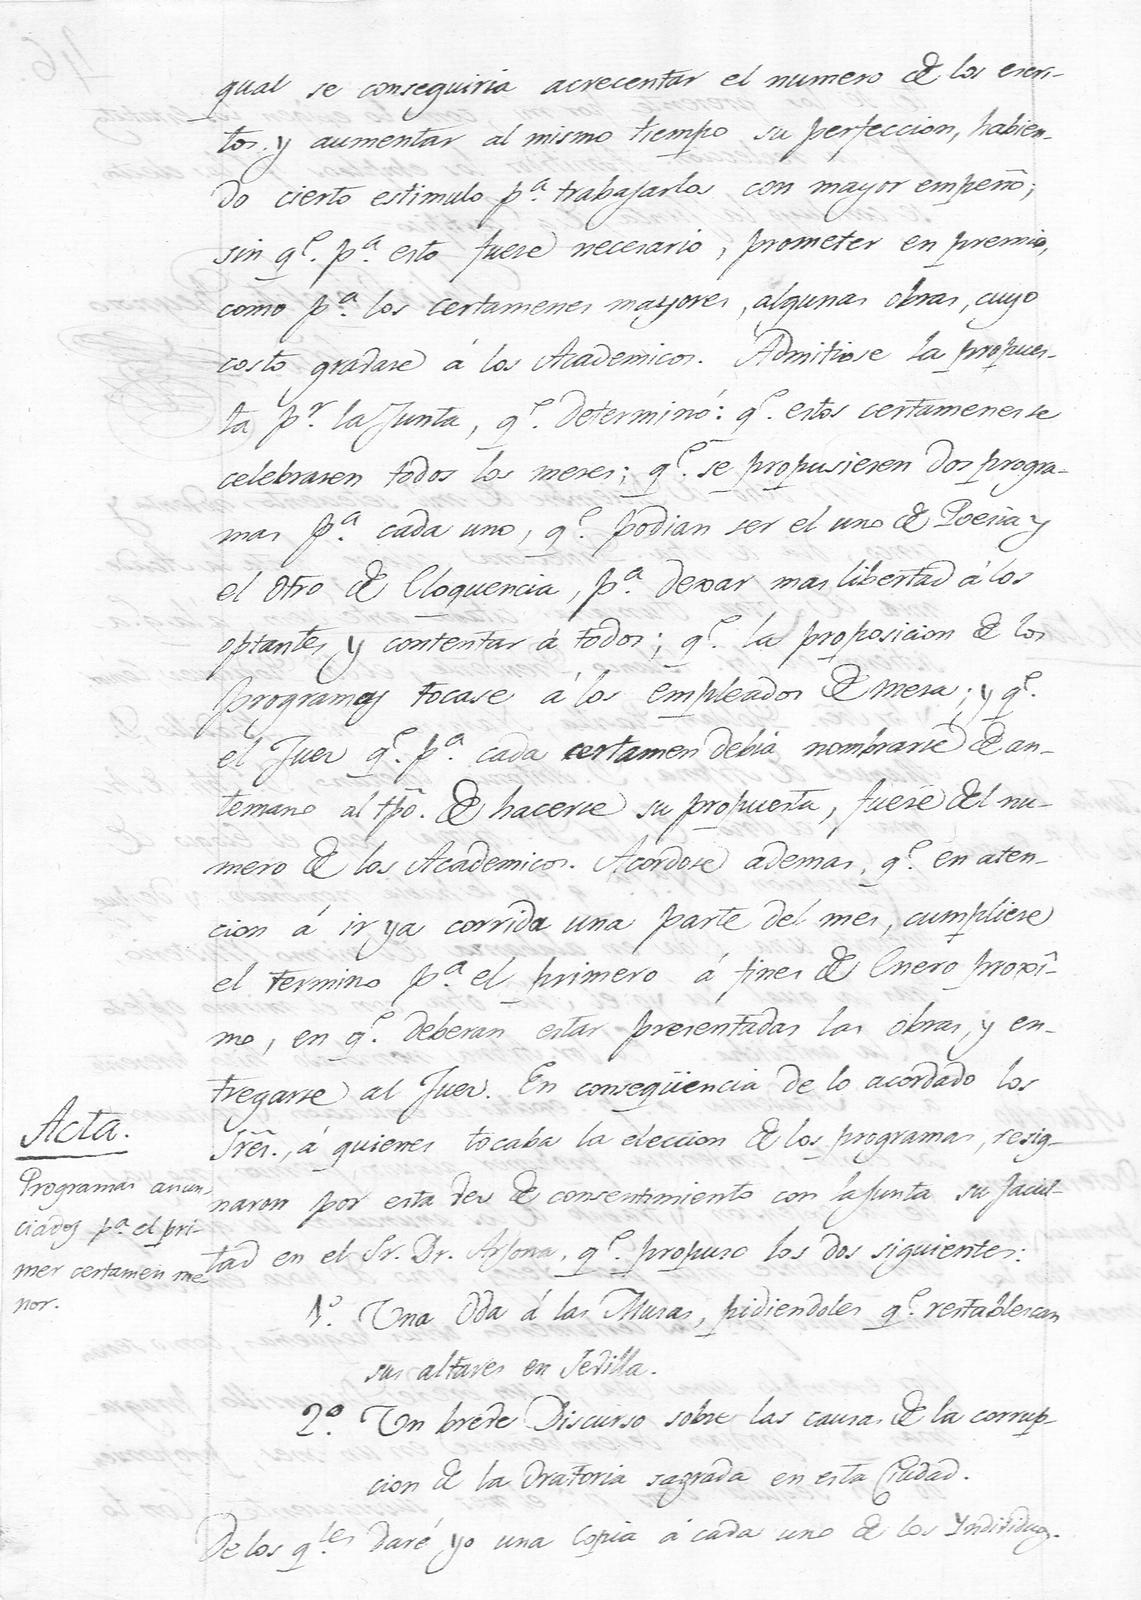 qual se conseguiria acrecentar el numero de los escri-
tos y aumentar al mismo tiempo su perfeccion, habien-
do cierto estimulo pª. trabajarlos con mayor empeño;
sin qe. pª. esto fuese necesario, prometer en premio,
como pª. los certamenes mayores, algunas obras, cuyo
costo gravase á los Academicos. Admitiose la propues-
ta pr. la Junta, qe. determinó: qe. estos certamenes se
celebrasen todos los meses; qe. se propusiesen dos progra-
mas pª. cada uno, qe. podian ser el uno de Poesia y
el otro de Eloquencia, pª. dexar mas libertad á los
optantes y contentar á todos; qe. la proposicion de los
programas tocase á los empleados de mesa; y qe.
el Juez qe. pª. cada certamen debia nombrarse de an-
temano al tpõ. de hacerse su propuesta, fuese del nu-
mero de los Academicos. Acordose ademas, qe. en aten-
cion á ir ya corrida una parte del mes, cumpliese
el termino pª. el primero á fines de Enero proxî-
mo, en qe. deberan estar presentadas las obras, y en-
tregarse al Juez. En conseqüencia de lo acordado los
Sres., á quienes tocaba la eleccion de los programas, resig-
naron por esta vez de consentimiento con la Junta su facul-
tad en el Sr. Dr. Arjona, qe. propuso los dos siguientes:
Acta.
Programas anun-
ciados pª. el pri-
mer certamen me
nor.
1º. Una Oda á las Musas, pidiendoles qe. restablescan
sus altares en Sevilla.
2º. Un breve Discurso sobre las causas de la corrup-
cion de la Oratoria sagrada en esta Ciudad.
De los qles. daré yo una Copia á cada uno de los Yndividuos.